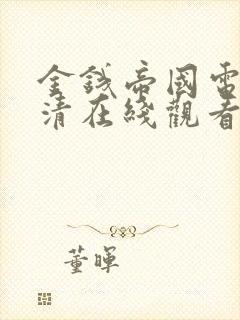 金錢帝國電
清在綫觀看
董暉